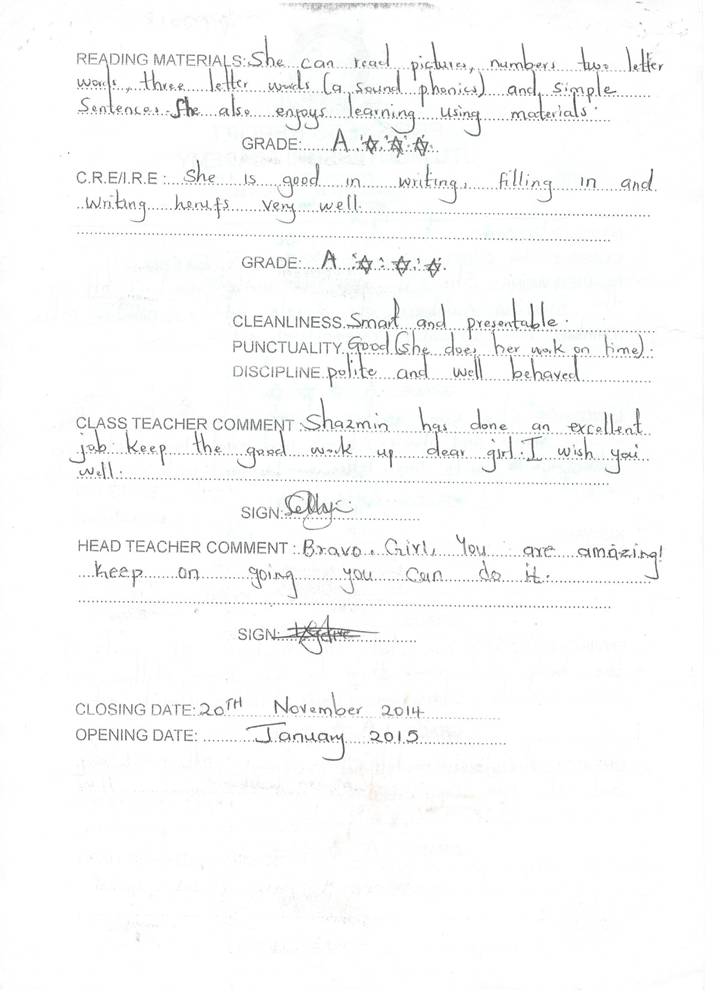 READING MATERIALS: She can read pictures, numbers two letter
words, three letter words (a sound phonics) and simple
Sentences. She also enjoys learning using materials.
GRADE: A ✡ ✡ ✡
C.R.E/I.R.E : She is good in writing, filling in and
Writing herufs very well.
GRADE: A ✡ ✡ ✡
CLEANLINESS Smart and presentable.
PUNCTUALITY Good (she does her work on time).
DISCIPLINE polite and well behaved
CLASS TEACHER COMMENT : Shazmin has done an excellent
job. Keep the good work up dear girl. I wish you
well.
SIGN:
HEAD TEACHER COMMENT : Bravo, Girl, You are amazing!
Keep on going you can do it.
SIGN:
CLOSING DATE: 20TH November 2014
OPENING DATE: January 2015